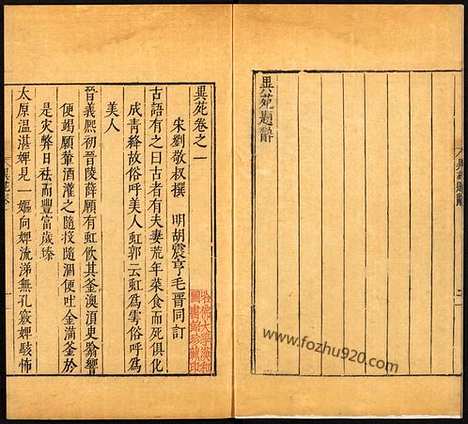 異苑題辭
異苑卷之一
宋劉敬叔撰 明胡震亨毛晉同訂
古語有之曰古者有夫妻荒年菜食而死俱化
成青絳故俗呼美人虹郭云虹為雩俗呼為
美人
晉義熙初晉陵薛願有虹飲其釜澳須臾翕響
便竭願輦酒灌之隨投隨涸便吐金滿釜於
是災弊日祛而豐富歲臻
太原溫湛婢見一嫗向婢流涕無孔竅婢駭怖
www.fozhu920.com